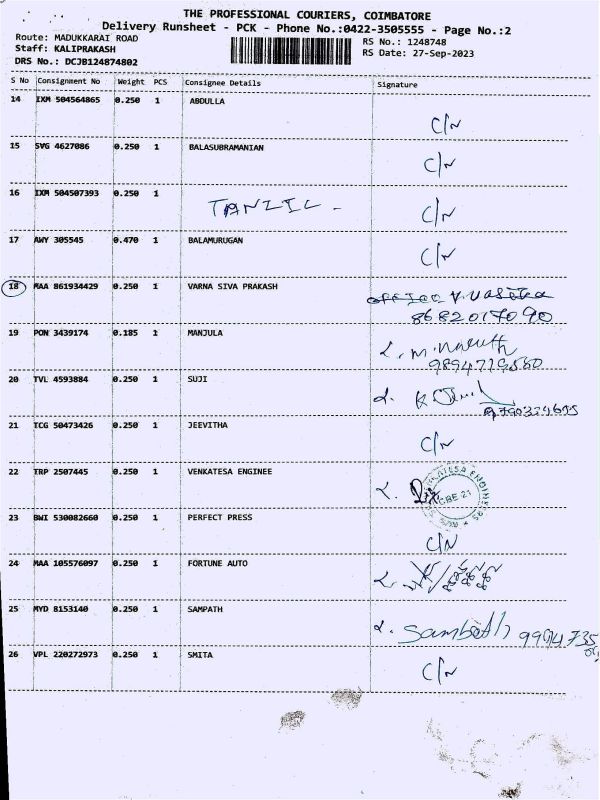 THE PROFESSIONAL COURIERS, COIMBATORE
Delivery Runsheet - PCK - Phone No.:0422-3505555 - Page No.:2
Route: MADUKKARAI ROAD
RS No.: 1248748
Staff: KALIPRAKASH
RS Date: 27-Sep-2023
DRS No.: DCJB124874802
S No Consignment No Weight PCS Consignee Details Signature
14 IXM 504564865 0.250 1 ABDULLA C/N
15 SVG 4627086 0.250 1 BALASUBRAMANIAN C/N
16 IXM 504507393 0.250 1 TANZIL - C/N
17 AWY 305545 0.470 1 BALAMURUGAN C/N
18 MAA 861934429 0.250 1 VARNA SIVA PRAKASH
8682017090
19 PON 3439174 0.185 1 MANJULA
20 TVL 4593884 0.250 1 SUJI
21 TCG 50473426 0.250 1 JEEVITHA C/N
22 TRP 2507445 0.250 1 VENKATESA ENGINEE
CBE 21
23 BWI 530082660 0.250 1 PERFECT PRESS C/N
24 MAA 105576097 0.250 1 FORTUNE AUTO
25 MYD 8153140 0.250 1 SAMPATH Sambath
26 VPL 220272973 0.250 1 SMITA C/N